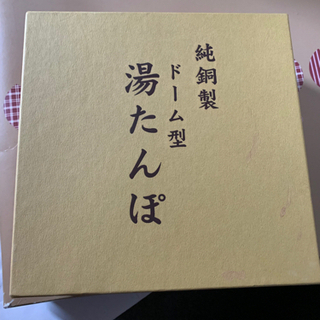 純銅製
ドーム型
湯たんぽ